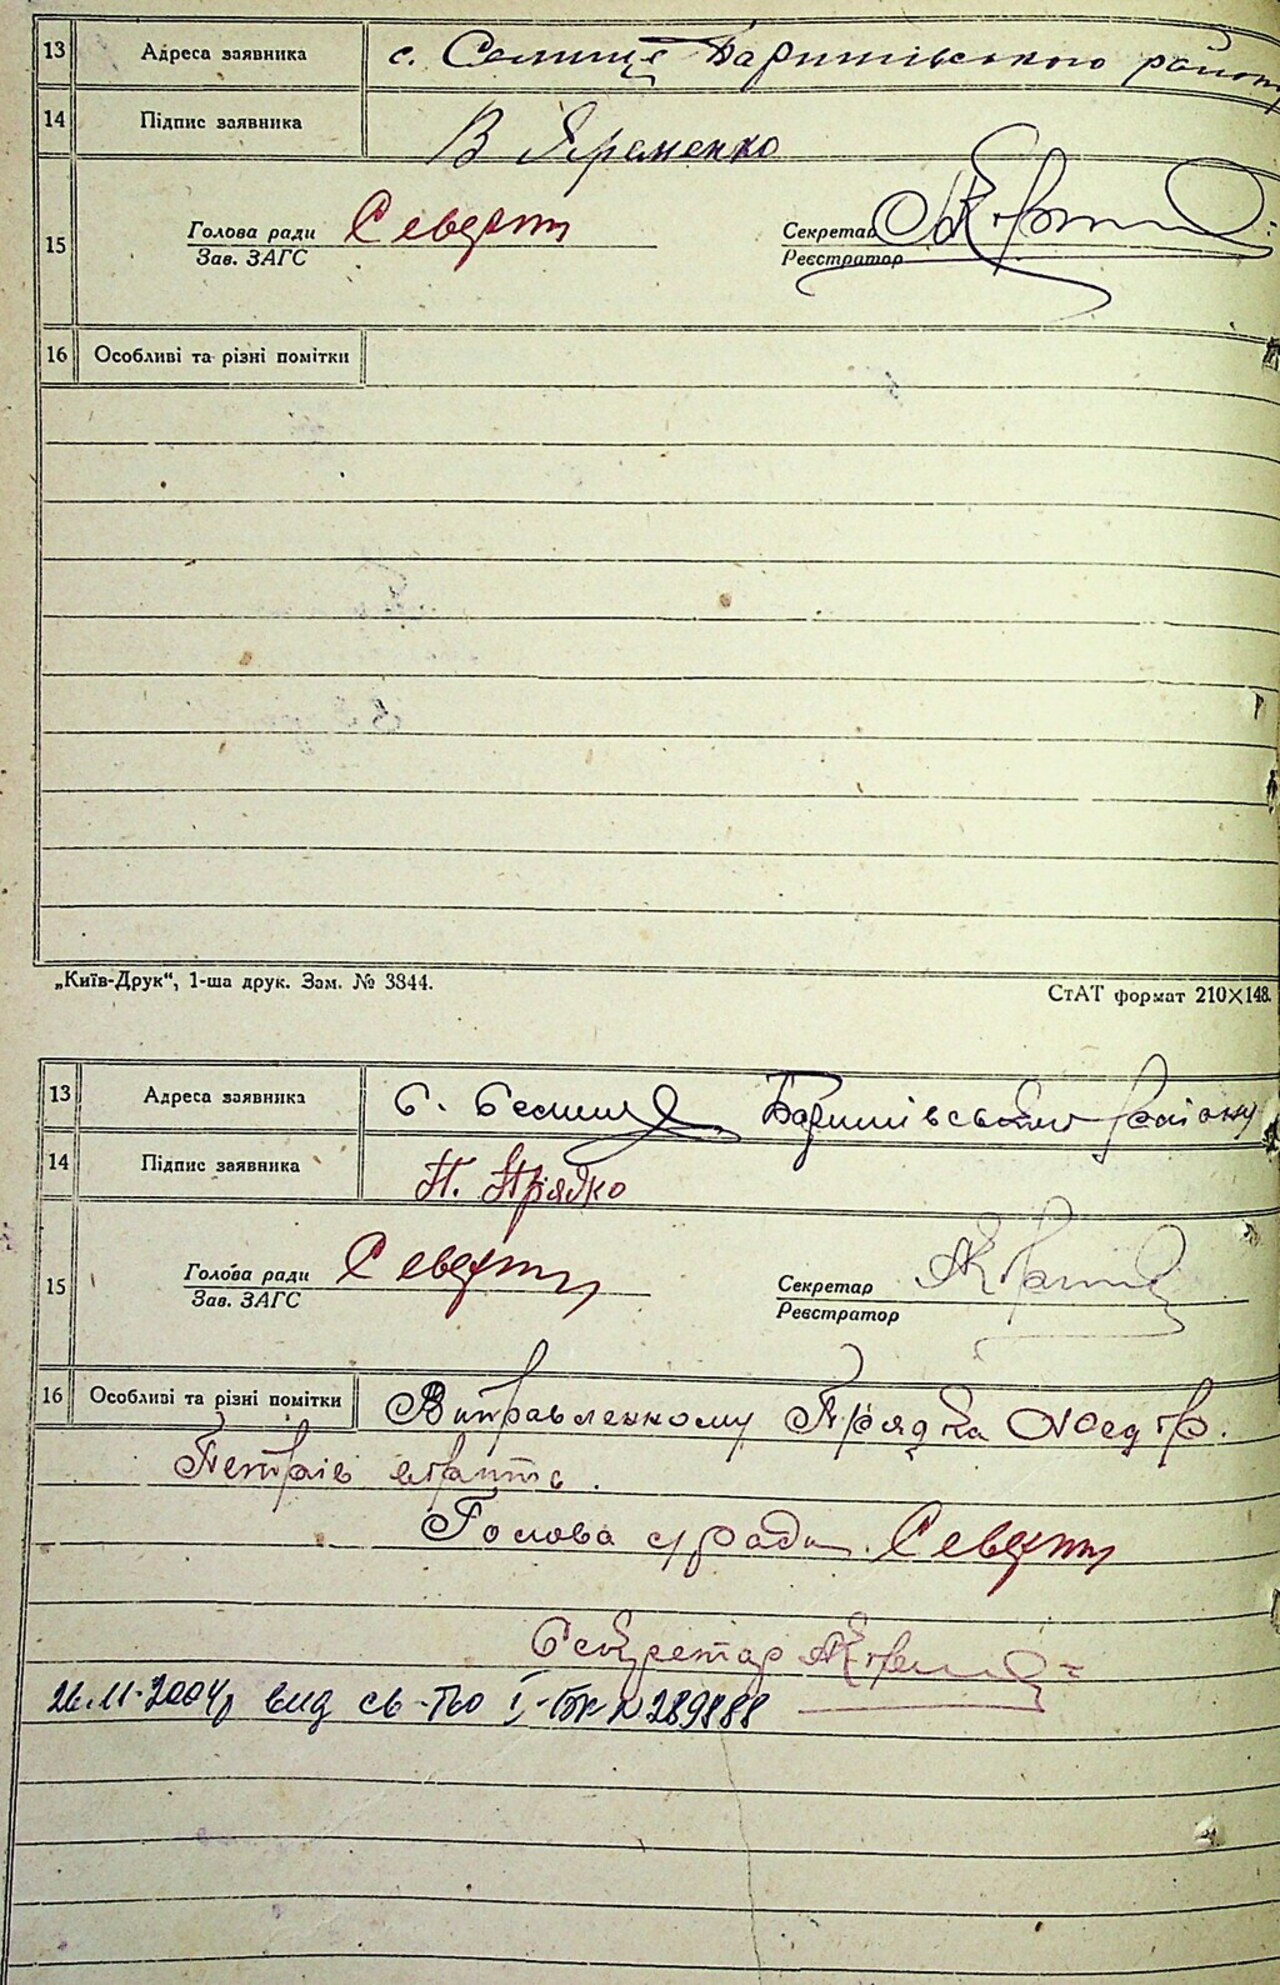 13 Адреса заявника с. Селище Баришівського району
14 Підпис заявника В Яременко
15 Голова ради
Зав. ЗАГС
Секретар
Реєстратор
16 Особливі та різні помітки
„Київ-Друк“, 1-ша друк. Зам. № 3844.
СтАТ формат 210×148.
13 Адреса заявника с. Селище Баришівського району
14 Підпис заявника П. Прядко
15 Голова ради
Зав. ЗАГС
Секретар
Реєстратор
16 Особливі та різні помітки Виправленному Прядка
вірить.
Голова с/ради
Секретар
26.11.2004р вид св-тво І-БК №289888